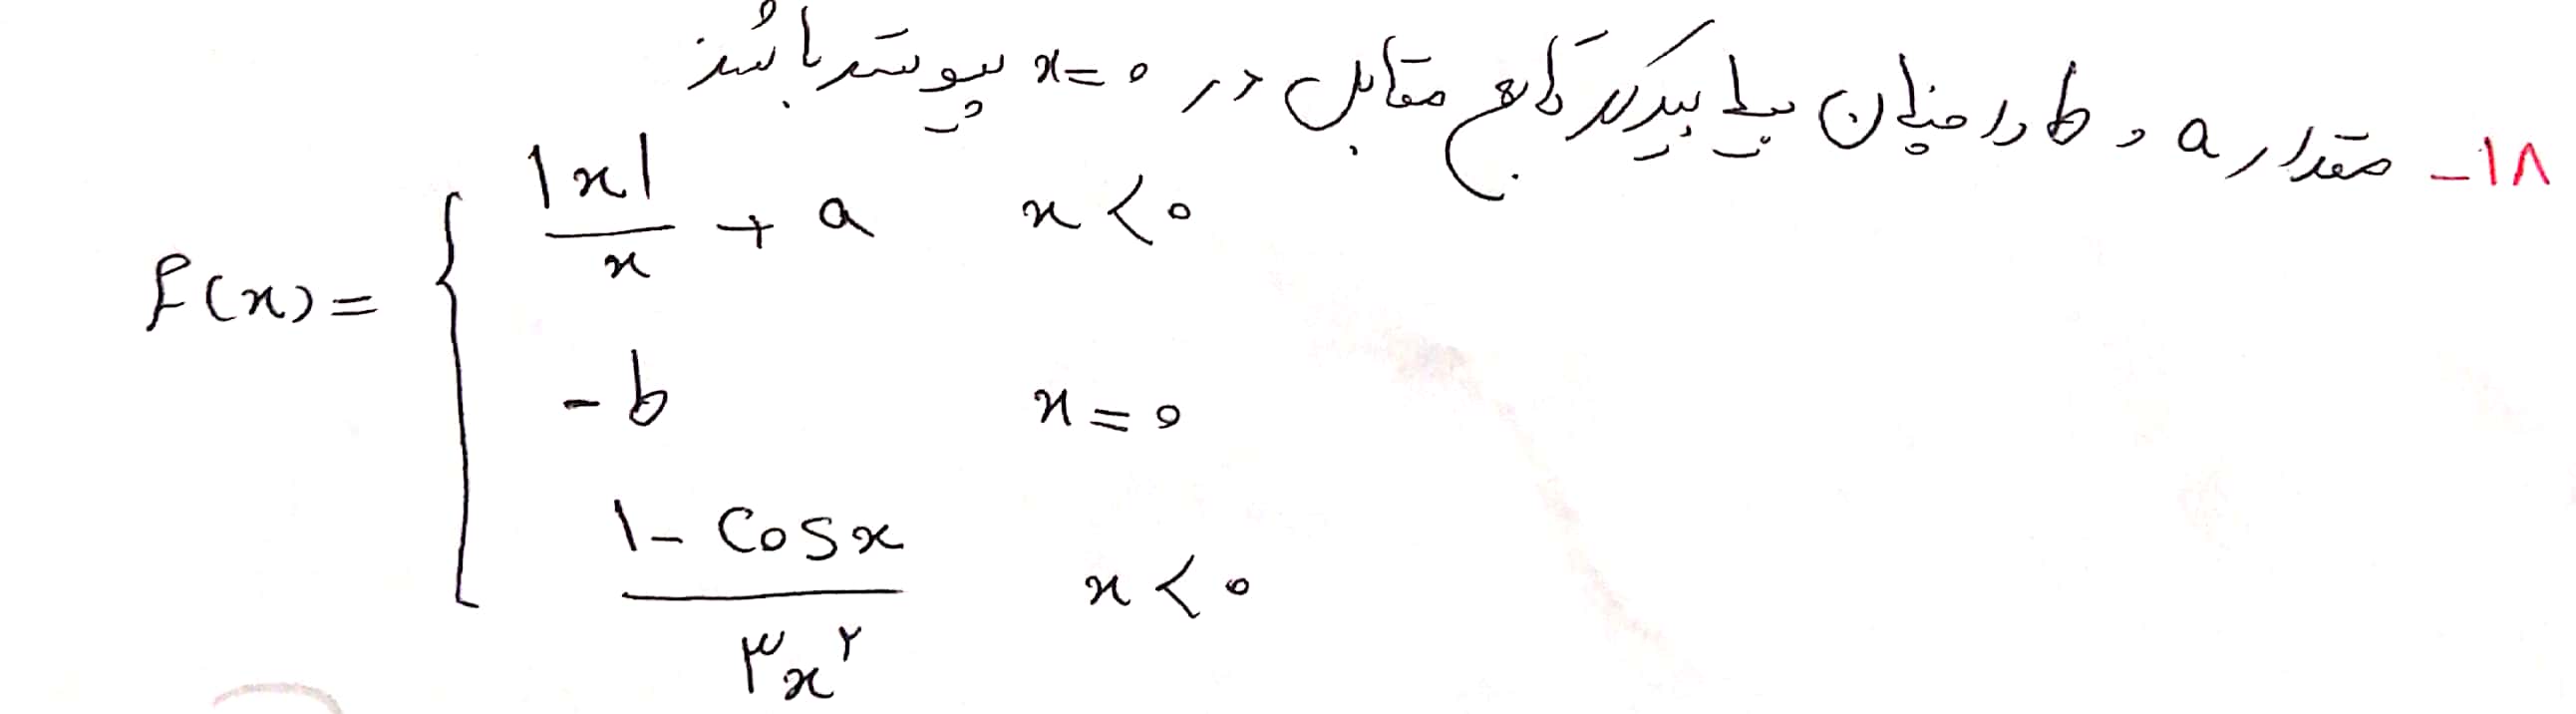 ۱۸- مقدار a و b را چنان بیابید که تابع مقابل در x=۰ پیوسته باشد
f(x) = { |x|/x + a    x < ۰
-b    x = ۰
(۱ - Cosx)/(۳x^۲)    x < ۰